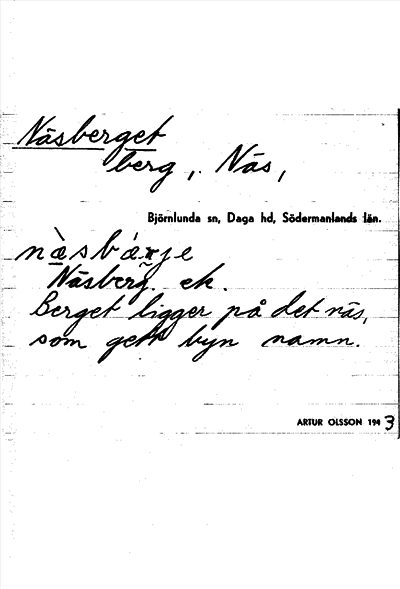 Näsberget
berg, Näs,
Björnlunda sn, Daga hd, Södermanlands län.
Näsberg. ek.
Berget ligger på det näs,
som gett byn namn.
ARTUR OLSSON 1943